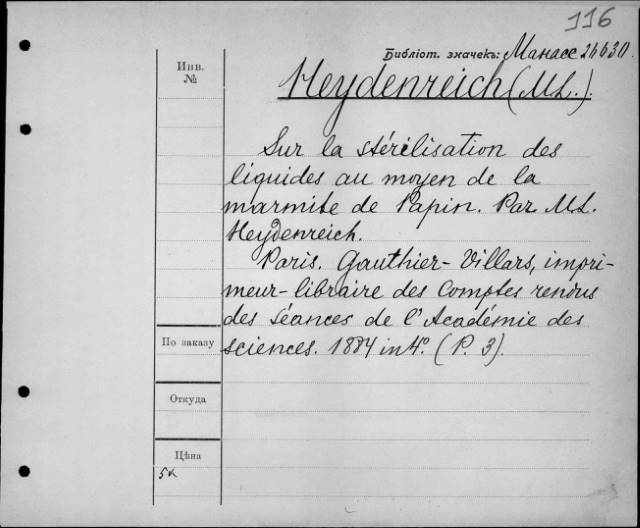 116
Библіот. значекъ: Манасс 24630.
Инв.
№
Heydenreich (ML.).
Sur la stérilisation des
liquides au moyen de la
marmite de Papin. Par ML.
Heydenreich.
Paris. Gauthier-Villars, impri-
meur-libraire des Comptes rendus
des Séances de l'Académie des
sciences. 1884 in 4° (P. 3).
По заказу
Откуда
Цѣна
5к